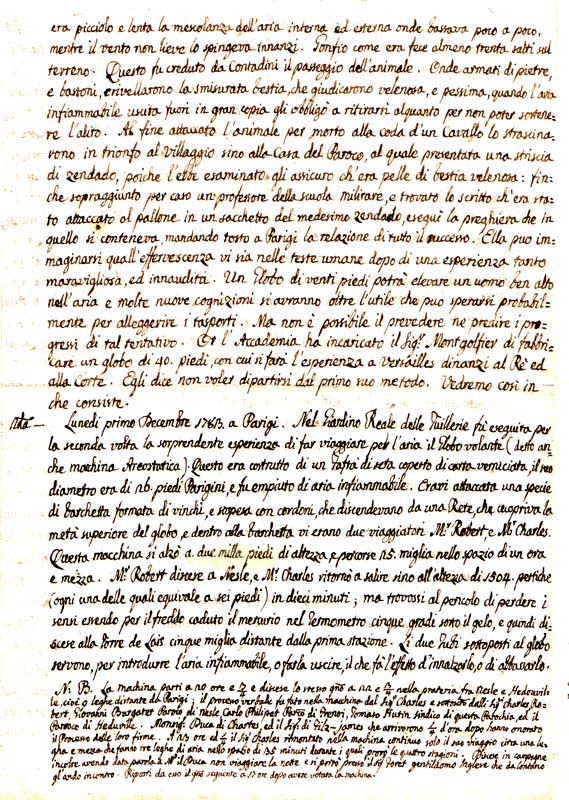 era picciolo e lenta la mescolanza dell'aria interna ed esterna onde bastava poco a poco,
mentre il vento non lieve lo spingeva innanzi. Gonfio come era fece almeno trenta salti sul
terreno. Questo fu creduto da Contadini il passeggio dell'animale. Onde armati di pietre,
e bastoni, crivellarono la smisurata bestia, che giudicarono velenosa, e pessima, quando l'aria
infiammabile uscita fuori in gran copia gli obbligò a ritirarsi alquanto per non poter sostene-
re l'alito. Al fine attaccato l'animale per morto alla Coda d'un Cavallo lo strascina-
rono in trionfo al villaggio sino alla Casa del Paroco, al quale presentata una striscia
di zendado, poiche l'ebbe esaminato, gli assicurò ch'era pelle di bestia velenosa: fin-
che sopraggiunto per caso un professore della scuola militare, e trovato lo scritto ch'era sta-
to attaccato al pallone in un sacchetto del medesimo zendado, eseguì la preghiera che in
quello si conteneva, mandando tosto a Parigi la relazione di tutto il successo. Ella puo im-
maginarsi quall'effervescenza vi sia nelle teste umane dopo di una esperienza tanto
maravigliosa, ed innaudita. Un Globo di venti piedi potrà elevare un uomo ben alto
nell'aria e molte nuove cognizioni si avranno oltre l'utile che puo sperarsi probabil-
mente per alleggerire i trasporti. Ma non è possibile il prevedere ne predire i pro-
gressi di tal tentativo. Or l'Accademia ha incaricato il Sig.r Montgolfier di fabbri-
care un globo di 40. piedi, con cui si farà l'esperienza a Versailles dinanzi al Rè ed
alla Corte. Egli dice non voler dipartirsi dal primo suo metodo. Vedremo così in
che consiste.
Lunedì primo Decembre 1783. a Parigi. Nel Giardino Reale delle Tuillerie fù eseguita per
la seconda volta la sorprendente esperienza di far viaggiare per l'aria il Globo volante (detto an-
che machina Areostatica). Questo era costrutto di un Taftà di seta coperto di carta verniciata, il suo
diametro era di 26. piedi Parigini, e fu empiuto di aria infiammabile. Eravi attaccata una specie
di barchetta formata di vinchi, e sospesa con cordoni, che discendevano da una Rete, che cuopriva la
metà superiore del globo, e dentro alla barchetta vi erano due viaggiatori M.r Robert, e M.r Charles.
Questa macchina si alzò a due milla piedi di altezza e percorse 25. miglia nello spazio di un ora
e mezza. M.r Robert discese a Nesle, e M.r Charles ritornò a salire sino all'altezza di 1504. pertiche
(ogni una delle quali equivale a sei piedi) in dieci minuti; ma trovassi al pericolo di perdere i
sensi essendo per il freddo caduto il mercurio nel termometro cinque gradi sotto il gelo, e quindi di-
scese alla Torre de Lais cinque miglia distante dalla prima stazione. Li due Tubi sottoposti al globo
servono, per introdurre l'aria infiammabile, o farla uscire, il che fà l'effetto d'innalzarlo, o di abbassarlo.
N. B. La machina partì a 20 ore e e discese lo stesso gno a e nella prateria fra Nesle e Hedouvil-
le, cioè 9 leghe distante da Parigi; il processo verbale fu fatto nella machina dal Sig.r Charles e sottoscritto dalli Sig.ri Charles Ro-
bert, Giovanni Burgaret Paroco di Nesle, Carlo Philipet Paroco di Frenoi, Tomaso Hutin Sindico di questa Parochia, ed il
Paroco di Hedouville. Monsig.r Duca di Chartes, ed il Sig.r di Fitz-James che arrivorono d'ora dopo hanno onorato
il Processo delle loro firme. A 23 ore ed il Sig.r Charles rimontato nella machina continuò solo il suo viaggio circa una le-
gha e mezza che fanno tre leghe di aria nello spazio di 35 minuti durante i quali provò le quattro stagioni. Discese in campagna
incolta avendo data parola a M.r il Duca non viaggiare la notte e si portò presso il Sig.r Foret gentiluomo Inglese che da lontano
gl'ando incontro. Ripartì da esso il gno seguente a 17 ore dopo avere votata la machina.